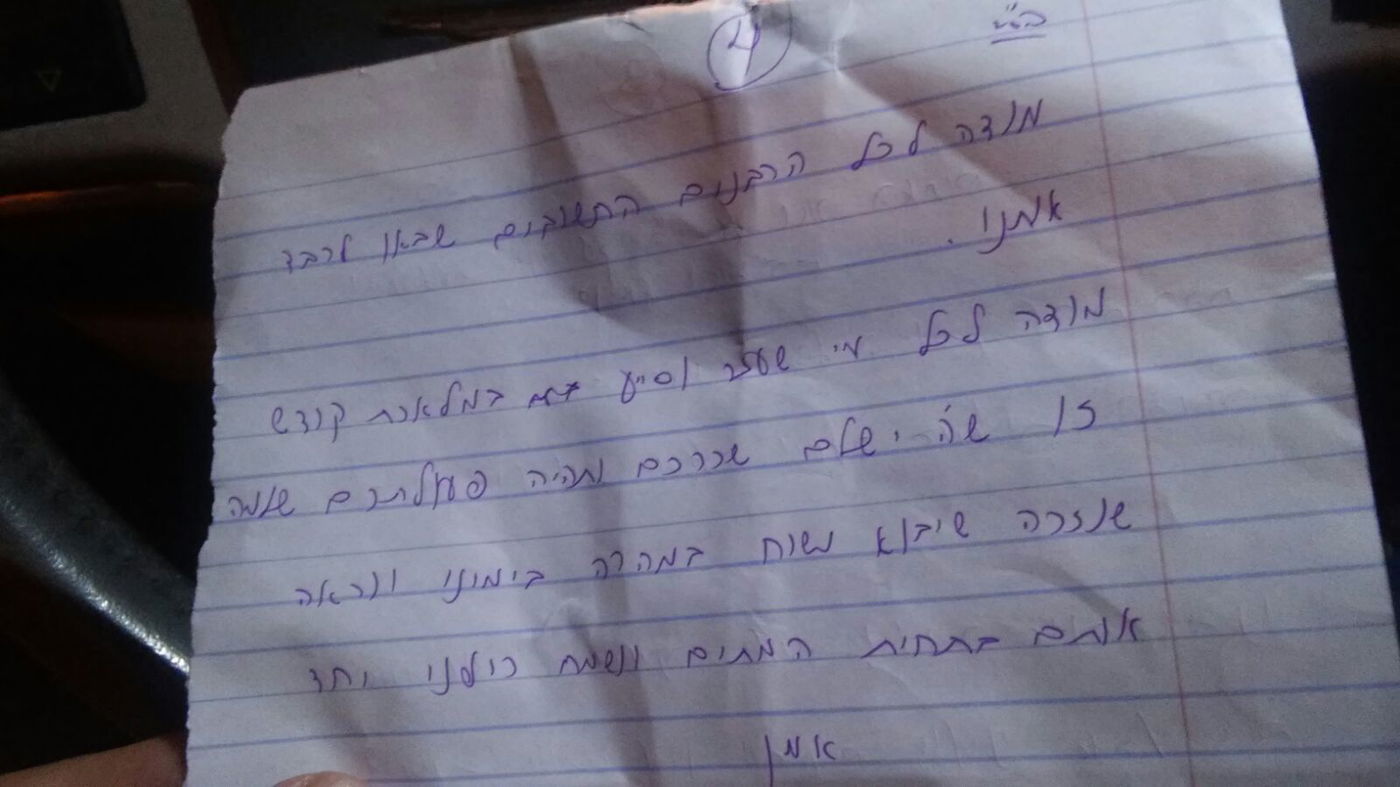 4
בס"ד
מודה לכל הרבנים החשובים שבאו לכבד
אותנו.
מודה לכל מי שעזר וסייע במלאכת קודש
זו שה' ישלם שכרכם ותהיה פעולתכם שלמה
שנזכה שיבוא משיח במהרה בימינו ונראה
אותם בתחית המתים ונשמח כולנו יחד
אמן